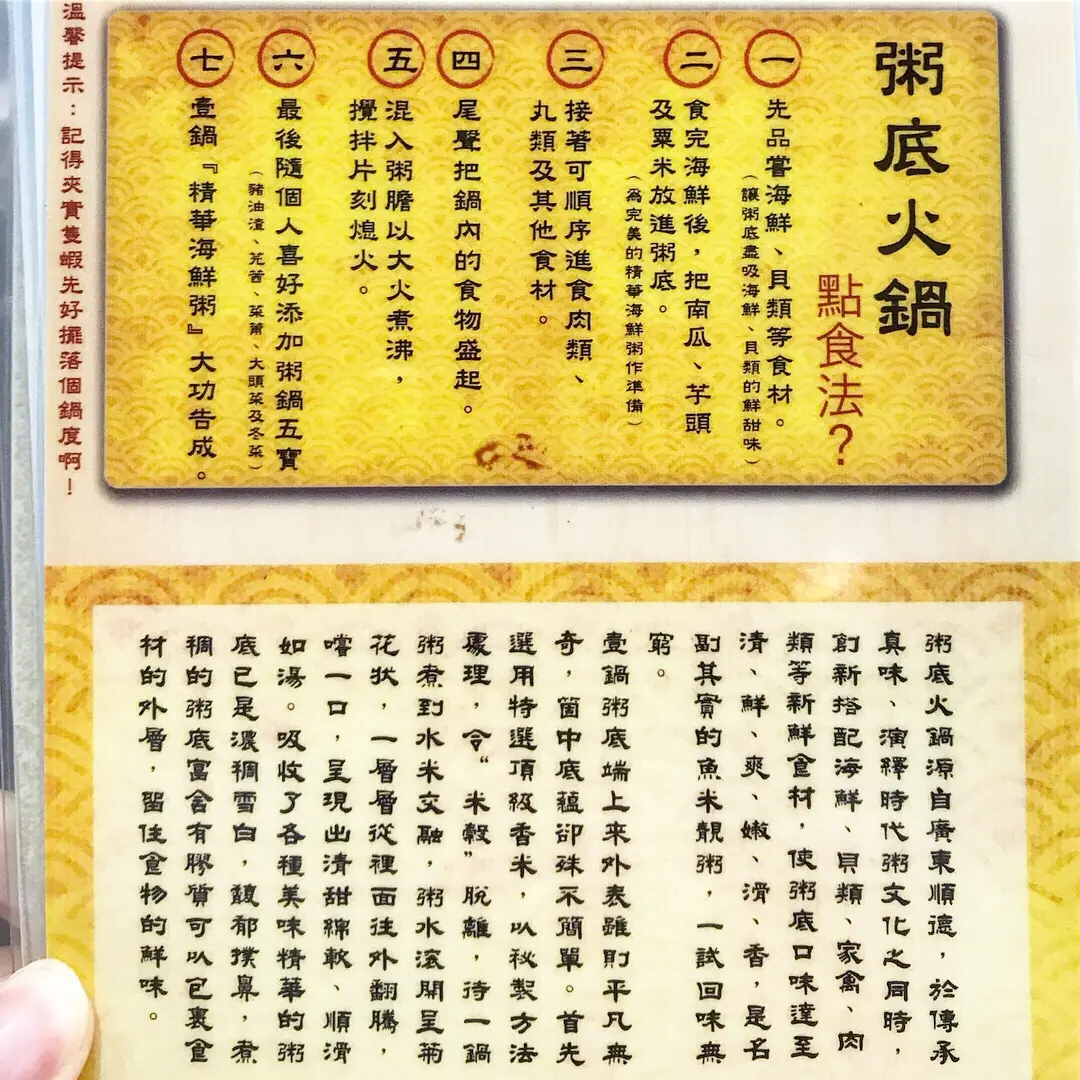 粥底火鍋
點食法？
一
先品嘗海鮮、貝類等食材。
（讓粥底盡吸海鮮、貝類的鮮甜味）
二
食完海鮮後，把南瓜、芋頭
及粟米放進粥底。
（為完美的精華海鮮粥作準備）
三
接著可順序進食肉類、
丸類及其他食材。
四
尾聲把鍋內的食物盛起。
五
混入粥膽以大火煮沸，
攪拌片刻熄火。
六
最後隨個人喜好添加粥鍋五寶
（豬油渣、芫茜、菜甫、大頭菜及冬菜）
七
壹鍋『精華海鮮粥』大功告成。
溫馨提示：記得夾實隻蝦先好擺落個鍋度啊！
粥底火鍋源自廣東順德，於傳承
真味、演繹時代粥文化之同時，
創新搭配海鮮、貝類、家禽、肉
類等新鮮食材，使粥底口味達至
清、鮮、爽、嫩、滑、香，是名
副其實的魚米靚粥，一試回味無
窮。
壹鍋粥底端上來外表雖則平凡無
奇，箇中底蘊卻殊不簡單。首先
選用特選頂級香米，以秘製方法
處理，令“米穀”脫離，待一鍋
粥煮到水米交融，粥水滾開呈菊
花狀，一層層從裡面往外翻騰，
嚐一口，呈現出清甜綿軟、順滑
如湯。吸收了各種美味精華的粥
底已是濃稠雪白，馥郁撲鼻，煮
稠的粥底富含有膠質可以包裹食
材的外層，留住食物的鮮味。